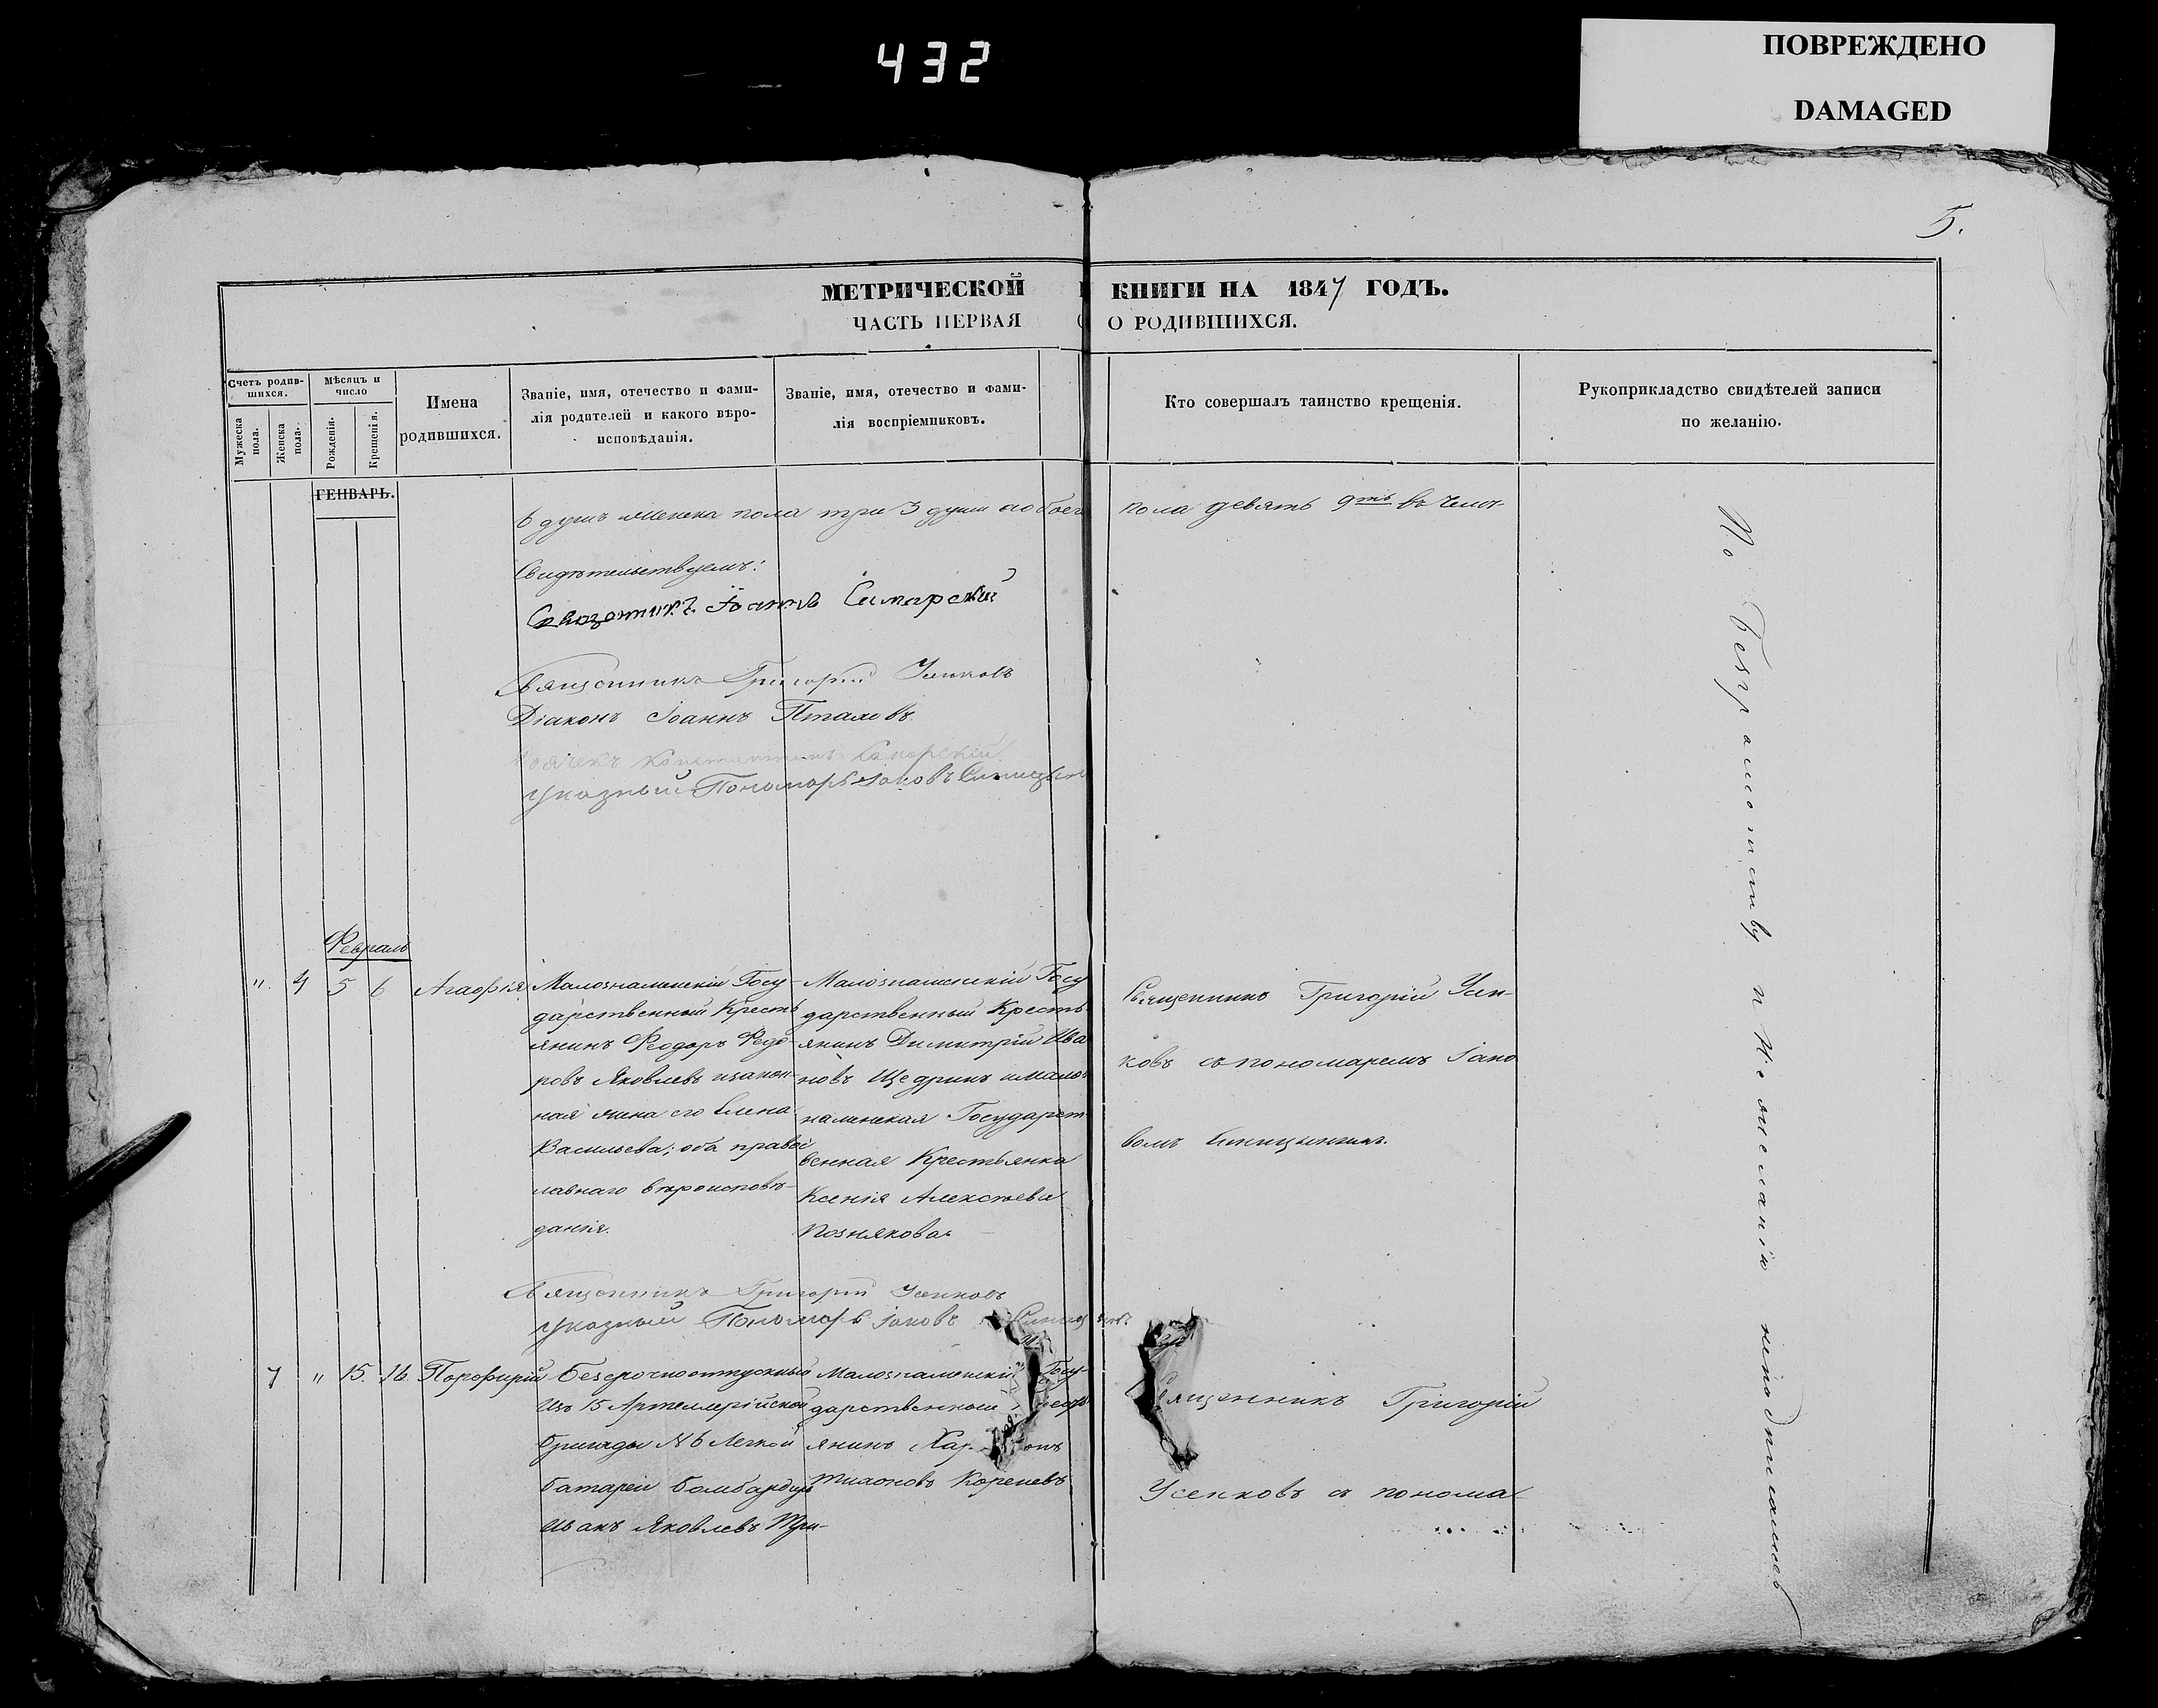 432
ПОВРЕЖДЕНО
DAMAGED
5.
МЕТРИЧЕСКОЙ КНИГИ НА 1847 ГОДЪ.
ЧАСТЬ ПЕРВАЯ О РОДИВШИХСЯ.
Счетъ родив-
шихся.
Мужеска
пола.
Женска
пола.
Мѣсяцъ и
число
Рожденія.
Крещенія.
Имена
родившихся.
Званіе, имя, отечество и фами-
лія родителей и какого вѣро-
исповѣданія.
Званіе, имя, отечество и фами-
лія воспріемниковъ.
Кто совершалъ таинство крещенія.
Рукоприкладство свидѣтелей записи
по желанію.
ГЕНВАРЬ.
6 душъ женска пола три 3 души а обоего пола девять 9ть въ чемъ
Свидѣтельствуемъ:
Священникъ Іоаннъ Самарскій
Священникъ Григорій Усиковъ
Діаконъ Іоаннъ Пталовъ
Константинъ Самарскій
Указный Пономарь Іаковъ Синицынъ
Февраль
" 4 5 6 Агафія
Малознаменскій Госу-
дарственный Кресть
янинъ Феодоръ Федо-
ровъ Яковлевъ и закон-
ная жена его Елена
Васильева; оба право
славнаго вѣроисповѣ-
данія.
Малознаменскій Госу
дарственный Кресть
янинъ Димитрій Ива
новъ Щедринъ и Малоз
наменская Государст
венная Крестьянка
Ксенія Алексѣева
Позднякова
Священникъ Григорій Усен-
ковъ съ пономаремъ Іако
вомъ Синицынымъ.
Священникъ Григорій Усиковъ
Указный Пономарь Іаковъ Синицынъ
7 " 15. 16. Порфирій
Безсрочноотпускный
Изъ 15 Артиллерійской
бригады №6 Легкой
батареи бомбардиръ
Иванъ Яковлевъ Три-
Малознаменскій Госу-
дарственный
янинъ
Тихоновъ Кореневъ
Священникъ Григорій
Усенковъ съ понома-
По безграмотству и Нежеланію неподписались